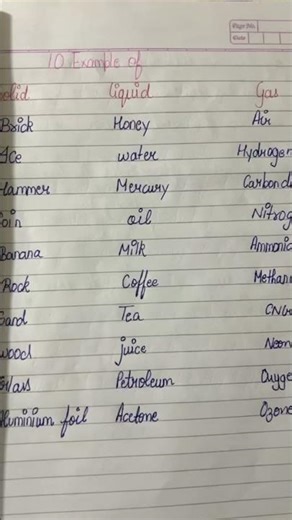 Page No.
Date
10 Example of
olid liquid Gas
Brick Honey Air
Ice water Hydrogen
Hammer Mercury Carbond
oin oil Nitrog
Banana Milk Ammonia
Rock Coffee Methan
Sand Tea CNG
wood juice Neon
Glass Petroleum Oxyge
luminium foil Acetone Ozone